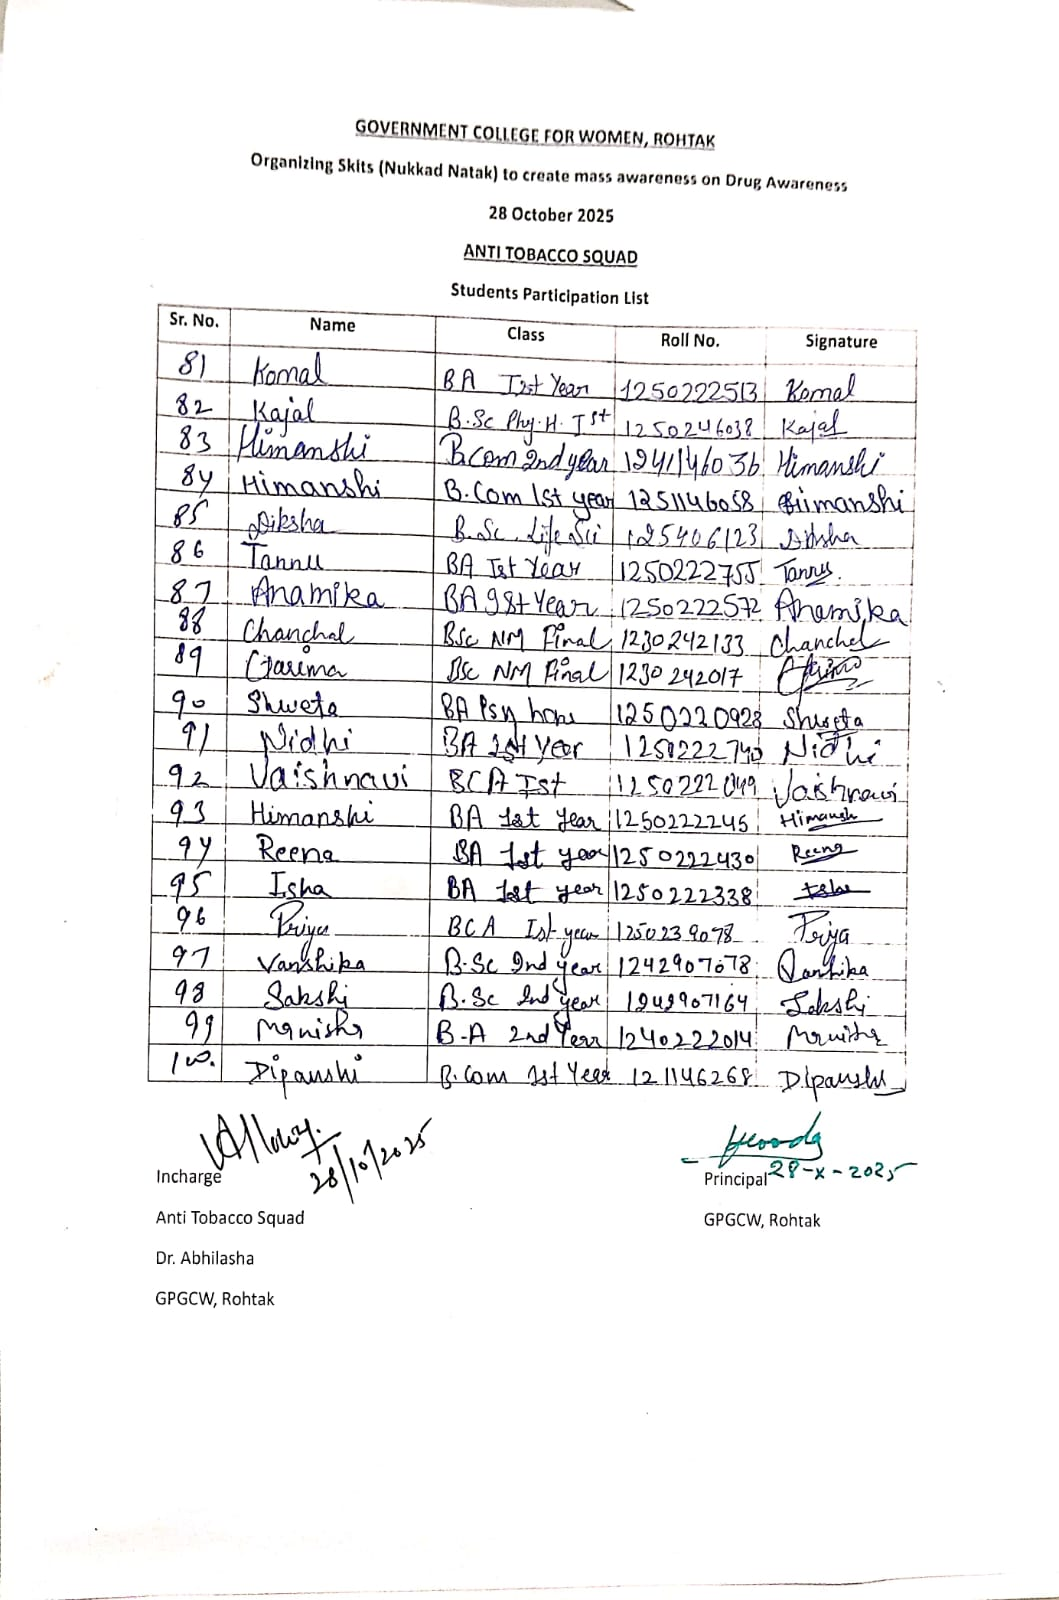 GOVERNMENT COLLEGE FOR WOMEN, ROHTAK
Organizing Skits (Nukkad Natak) to create mass awareness on Drug Awareness
28 October 2025
ANTI TOBACCO SQUAD
Students Participation List
Sr. No. Name Class Roll No. Signature
81 Komal BA Ist Year 1250222513 Komal
82 Kajal B.Sc Phy.H. Ist 1250246038 Kajal
83 Himanshi B.Com 2nd year 1241146036 Himanshi
84 Himanshi B.Com 1st year 1251146058 Himanshi
85 Diksha B.Sc. Life Sci 125406123 Diksha
86 Tannu BA Ist Year 1250222755 Tannu
87 Anamika BA Ist Year 1250222572 Anamika
88 Chanchal BSc NM Final 1230242133 Chanchal
89 Garima BSc NM Final 1230242017
90 Shweta BA Psy hons 1250220928 Shweta
91 Nidhi BA 1st Year 1250222740 Nidhi
92 Vaishnavi BCA Ist Vaishnavi
93 Himanshi BA 1st Year 1250222245 Himansh
94 Reena BA 1st year 1250222430 Reena
95 Isha BA 1st year 1250222338 Isha
96 Priya BCA Ist year 1250239078 Priya
97 Vanshika B.Sc 2nd year 1242907078 Vanshika
98 Sakshi B.Sc 2nd year 1242907164 Sakshi
99 Manisha B.A 2nd Year 1240222014 Manisha
100. Dipanshi B.Com 1st Year 121146268 Dipanshi
28/10/2025
Incharge
28-X-2025
Principal
Anti Tobacco Squad
GPGCW, Rohtak
Dr. Abhilasha
GPGCW, Rohtak